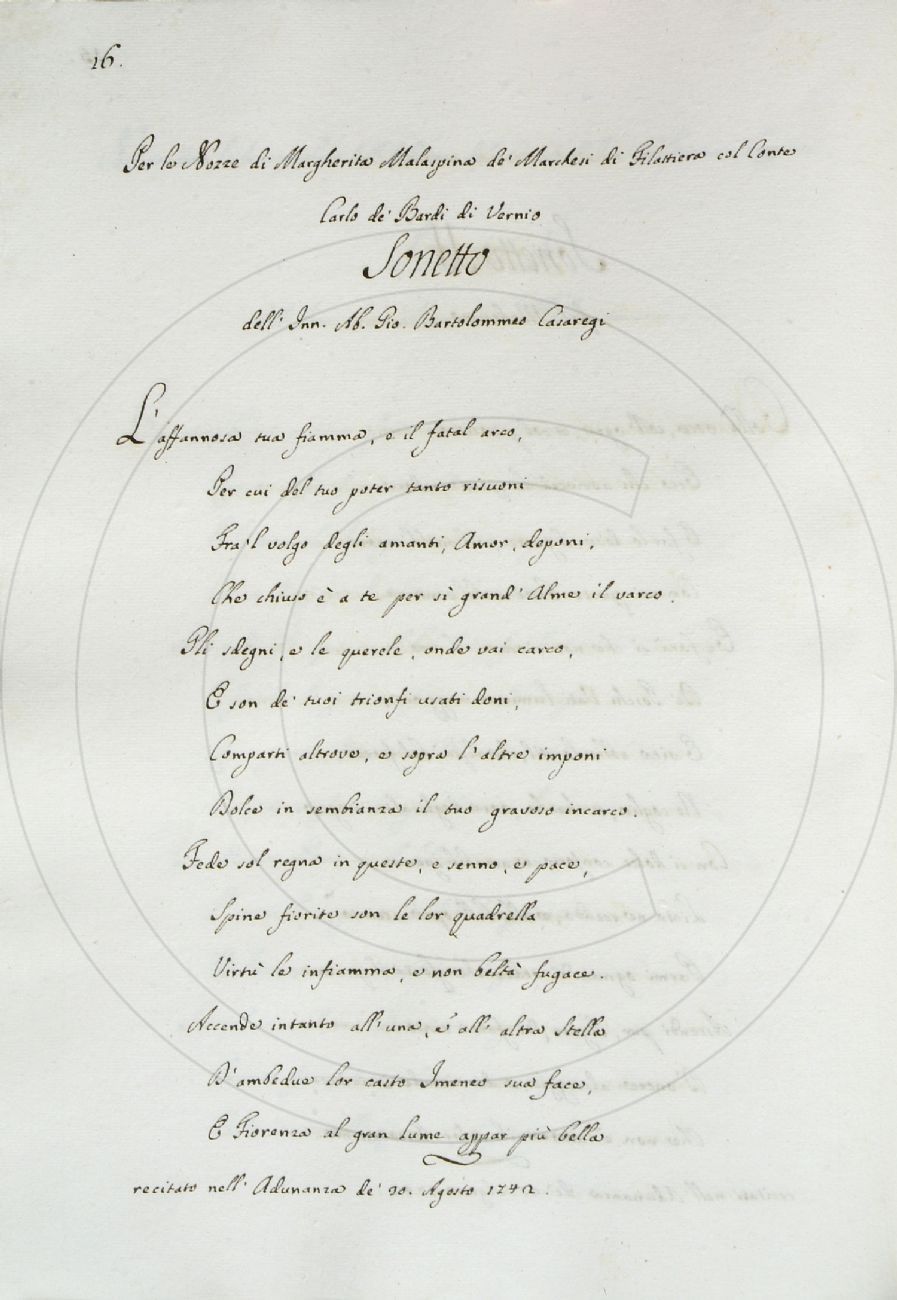 16.
Per le Nozze di Margherita Malaspina de' Marchesi di Filattiera col Conte
Carlo de' Bardi di Vernio
Sonetto
dell' Inn. Ab. Gio. Bartolommeo Casaregi
L'affannosa tua fiamma, e il fatal arco,
Per cui del tuo poter tanto risuoni
Fra'l volgo degli amanti, Amor, deponi,
Che chiuso è a te per sì grand' Alme il varco.
Gli sdegni, e le querele, onde vai carco,
E son de' tuoi trionfi usati doni,
Comparti altrove, e sopra l'altre imponi
Dolce in sembianza il tuo gravoso incarco.
Fede sol regna in queste, e senno, e pace,
Spine fiorite son le lor quadrella
Virtù le infiamma, e non beltà fugace.
Accende intanto all'una, e all'altra Stella
D'ambedue lor casto Imeneo sua face,
E Fiorenza al gran lume appar più bella
recitato nell' Adunanza de' 30. Agosto 1742.